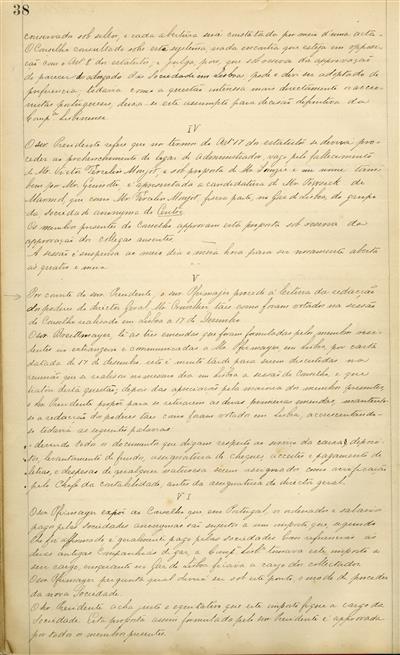 38
conservada sob sellos, e cada abertura sera constatada por meio d'uma acta.
O Conselho consultado sobre este systema, nada encontra que esteja em opposi-
ção com o Artº 8 do estatuto, e julga, pois, que sob reserva da approvação
do parecer do advogado das Sociedades em Lisboa, pode e deve ser adoptado de
preferencia, todavia como a questão interessa mais directamente os accio-
nistas portuguezes, deixa-se este assumpto para decisão definitiva da
Compª Lisbonense.
IV
O snr. Presidente refere que nos termos do Artº 17 dos estatutos se deverá pro-
ceder ao preenchimento do logar de administrador, vago pelo fallecimento
de Mr. Victor Fevelin Monjot, e sob proposta de Mr. e em nome tam-
bem por Mr. é apresentada a candidatura de Mr.
que como Mr. Fevelin Monjot fizera parte, no Gaz de Lisboa, do grupo
da Sociedade anonyma do Centre.
Os membros presentes do Conselho approvam esta proposta sob reserva da
approvação dos collegas ausentes.
A sessão é suspensa ao meio dia e meia hora para ser novamente aberta
ás quatro e meia.
V
Por convite do snr. Presidente, o snr. Pfirmayer procede á leitura da redacção
dos poderes do director geral Mr. taes como foram votados na sessão
do Conselho realisada em Lisboa a 17 de Dezembro.
O snr. lê as tres emendas que foram formuladas pelos membros resi-
dentes no estrangeiro e communicadas a Mr. Pfirmayer em Lisboa, por carta
datada de 17 de dezembro, isto é muito tarde para serem discutidas na
reunião que se realisou no mesmo dia em Lisboa a sessão do Conselho, e que
tratou desta questão; depois das apreciações pela maioria dos membros presentes,
o Mr. Presidente propõe para se retirarem as duas primeiras emendas, mantendo-
se a redacção dos poderes taes como foram votados em Lisboa, accrescentando-
se todavia as seguintes palavras:
"devendo todos os documentos que digam respeito ao serviço da caixa, deposi-
tos, levantamento de fundos, assignatura de cheques, acceites e pagamento de
letras, e despesas de qualquer natureza serem assignados como verificação
pelo Chefe da contabilidade, antes da assignatura do director geral.
VI
O snr. Pfirmayer expõe ao Conselho que em Portugal, os ordenados e salarios
pagos pelas Sociedades anonymas são sujeitos a um imposto que, segundo
lhe foi affirmado é geralmente pago pelas Sociedades. Com referencia ás
duas antigas Companhias de gaz, a Compª Lisbª tomava este imposto a
seu cargo, emquanto no Gaz de Lisboa ficava a cargo dos collectados.
O snr Pfirmayer pergunta qual deverá ser sob este ponto, o modo de proceder
da nova Sociedade.
O snr. Presidente acha justo e equitativo que este imposto fique a cargo da
Sociedade. Esta proposta assim formulada pelo snr. Presidente é approvada
por todos os membros presentes.